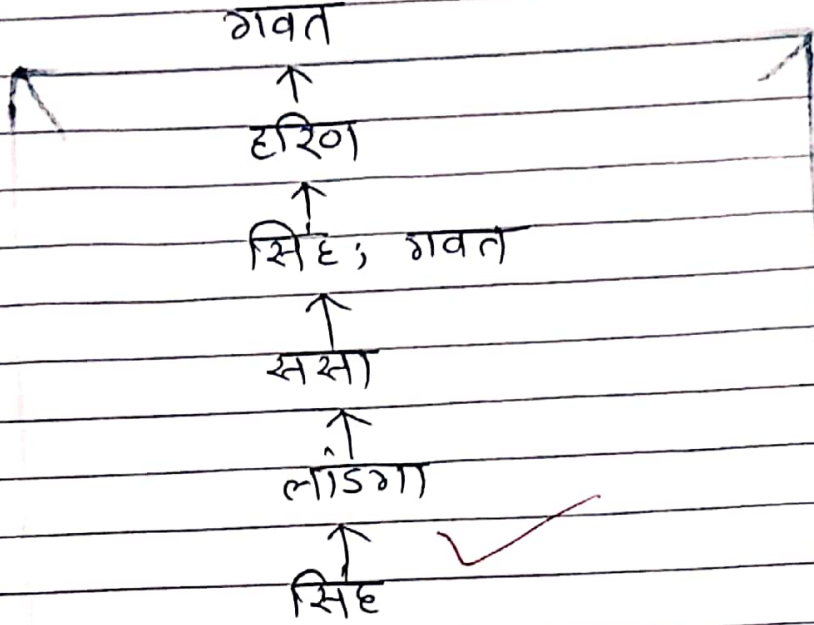 गवत
↑
हरिण
↑
सिंह; गवत
↑
ससा
↑
लांडगा
↑
सिंह